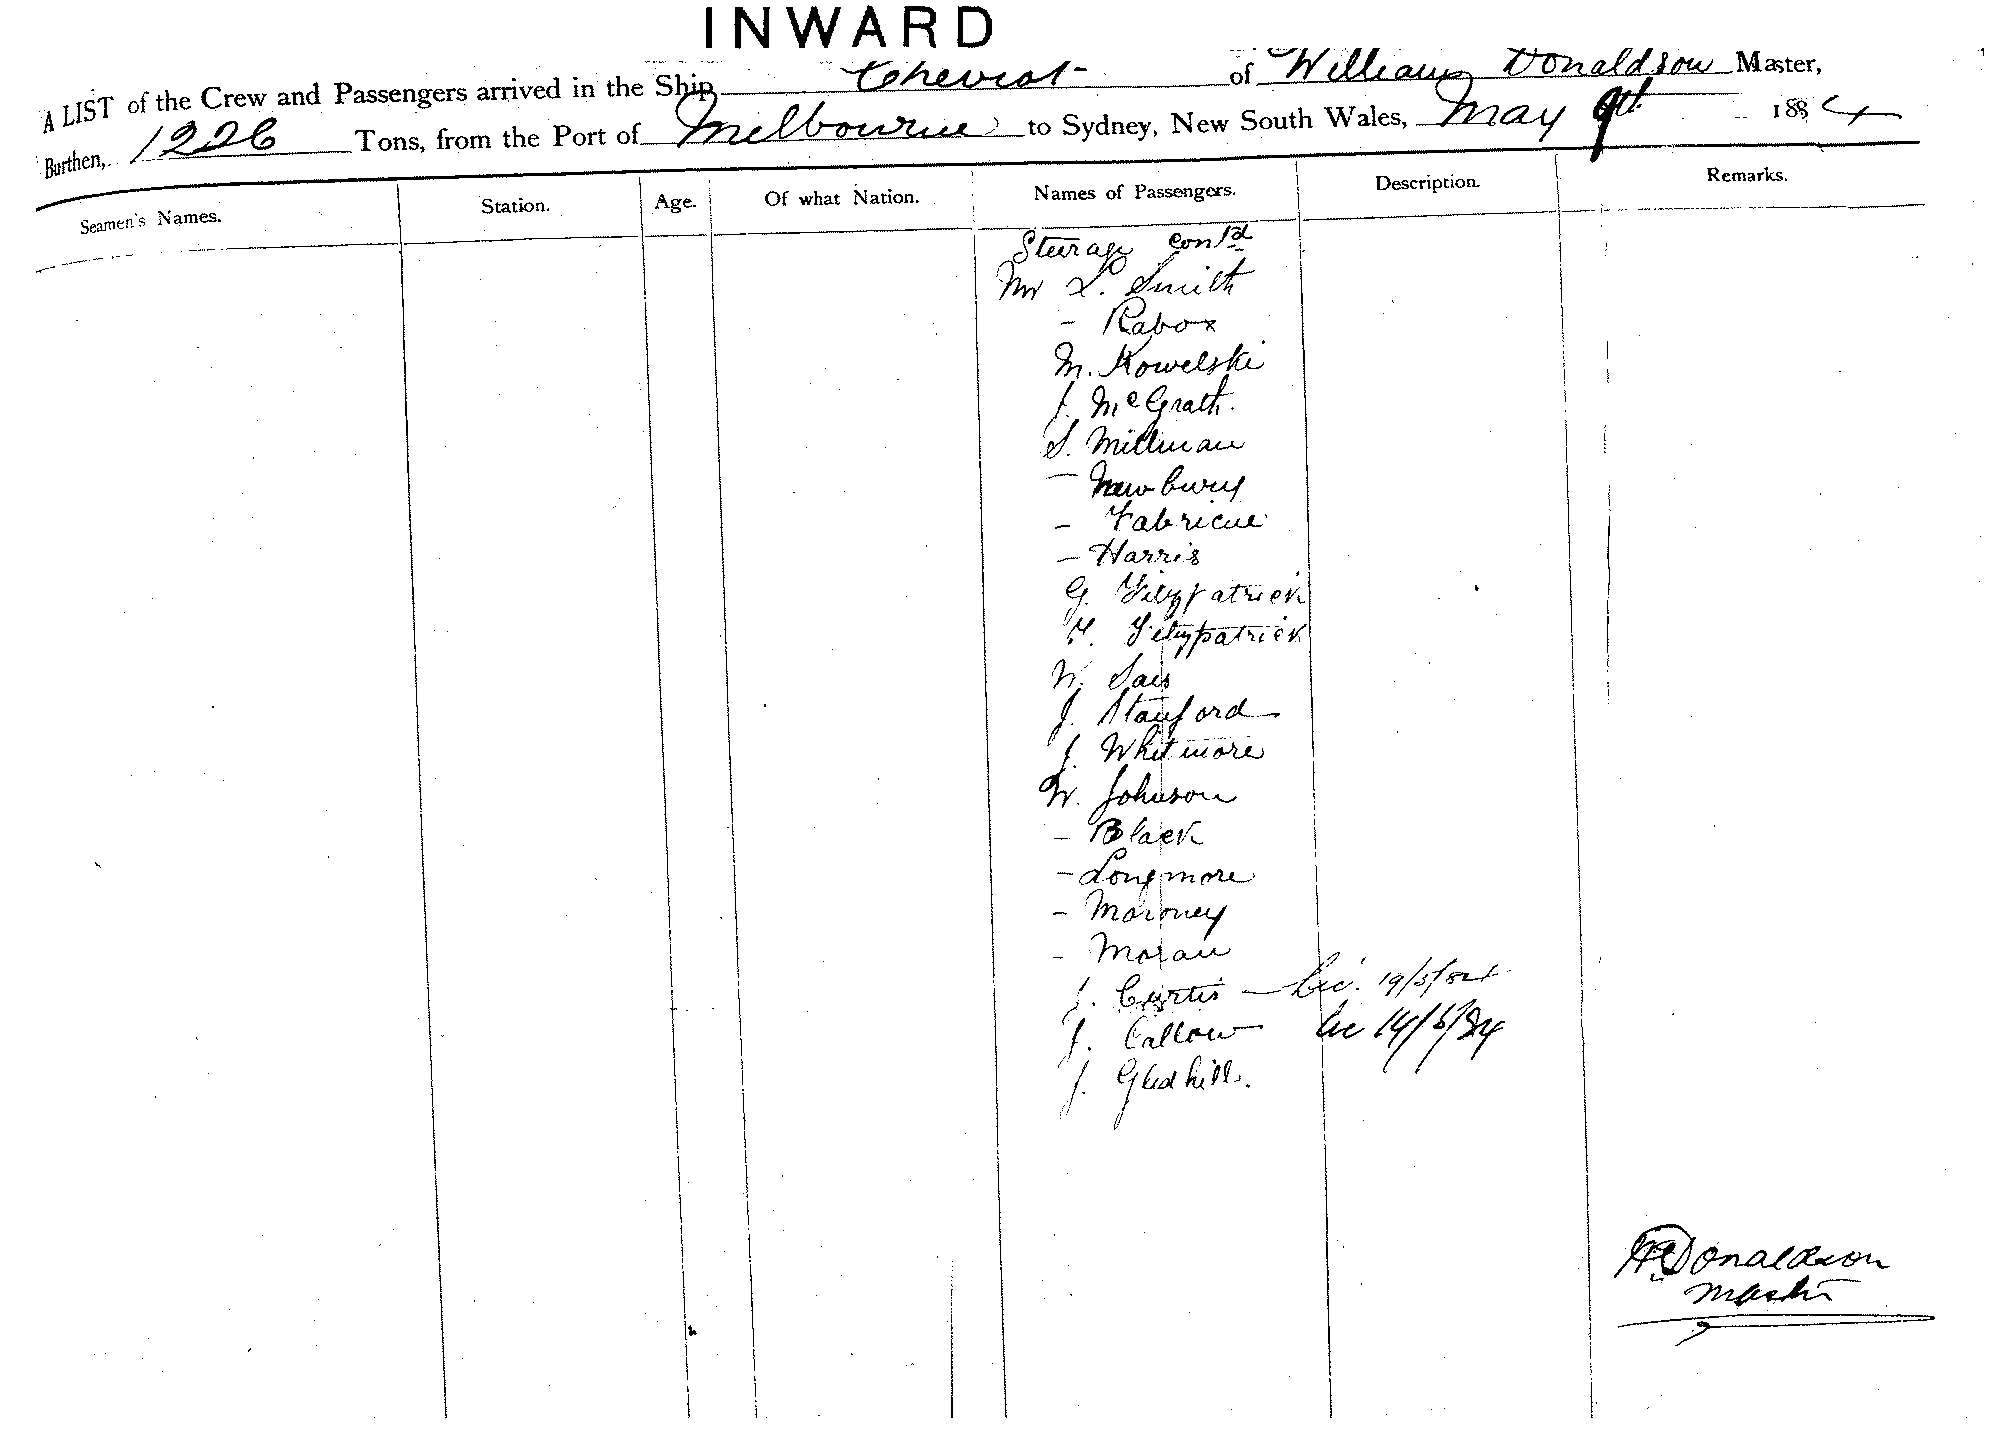 INWARD
A LIST of the Crew and Passengers arrived in the Ship Cheviot of William Donaldson Master,
Burthen, 1226 Tons, from the Port of Melbourne to Sydney, New South Wales, May 9th 1884
Seamen's Names. Station. Age. Of what Nation. Names of Passengers. Description. Remarks.
Steerage Contd
Mr L. Smith
- Rabox
M. Kowelski
J. McGrath.
S. Millman
- Newbury
- Fabricue
- Harris
G. Fitzpatrick
F. Fitzpatrick
W. Sais
J. Stanford
J. Whitmore
W. Johnson
- Black
- Longmore
- Maroney
- Moran
J. Curtis - Lic. 19/5/84
J. Callow Lic 14/5/84
J. Gledhill.
W Donaldson
Master